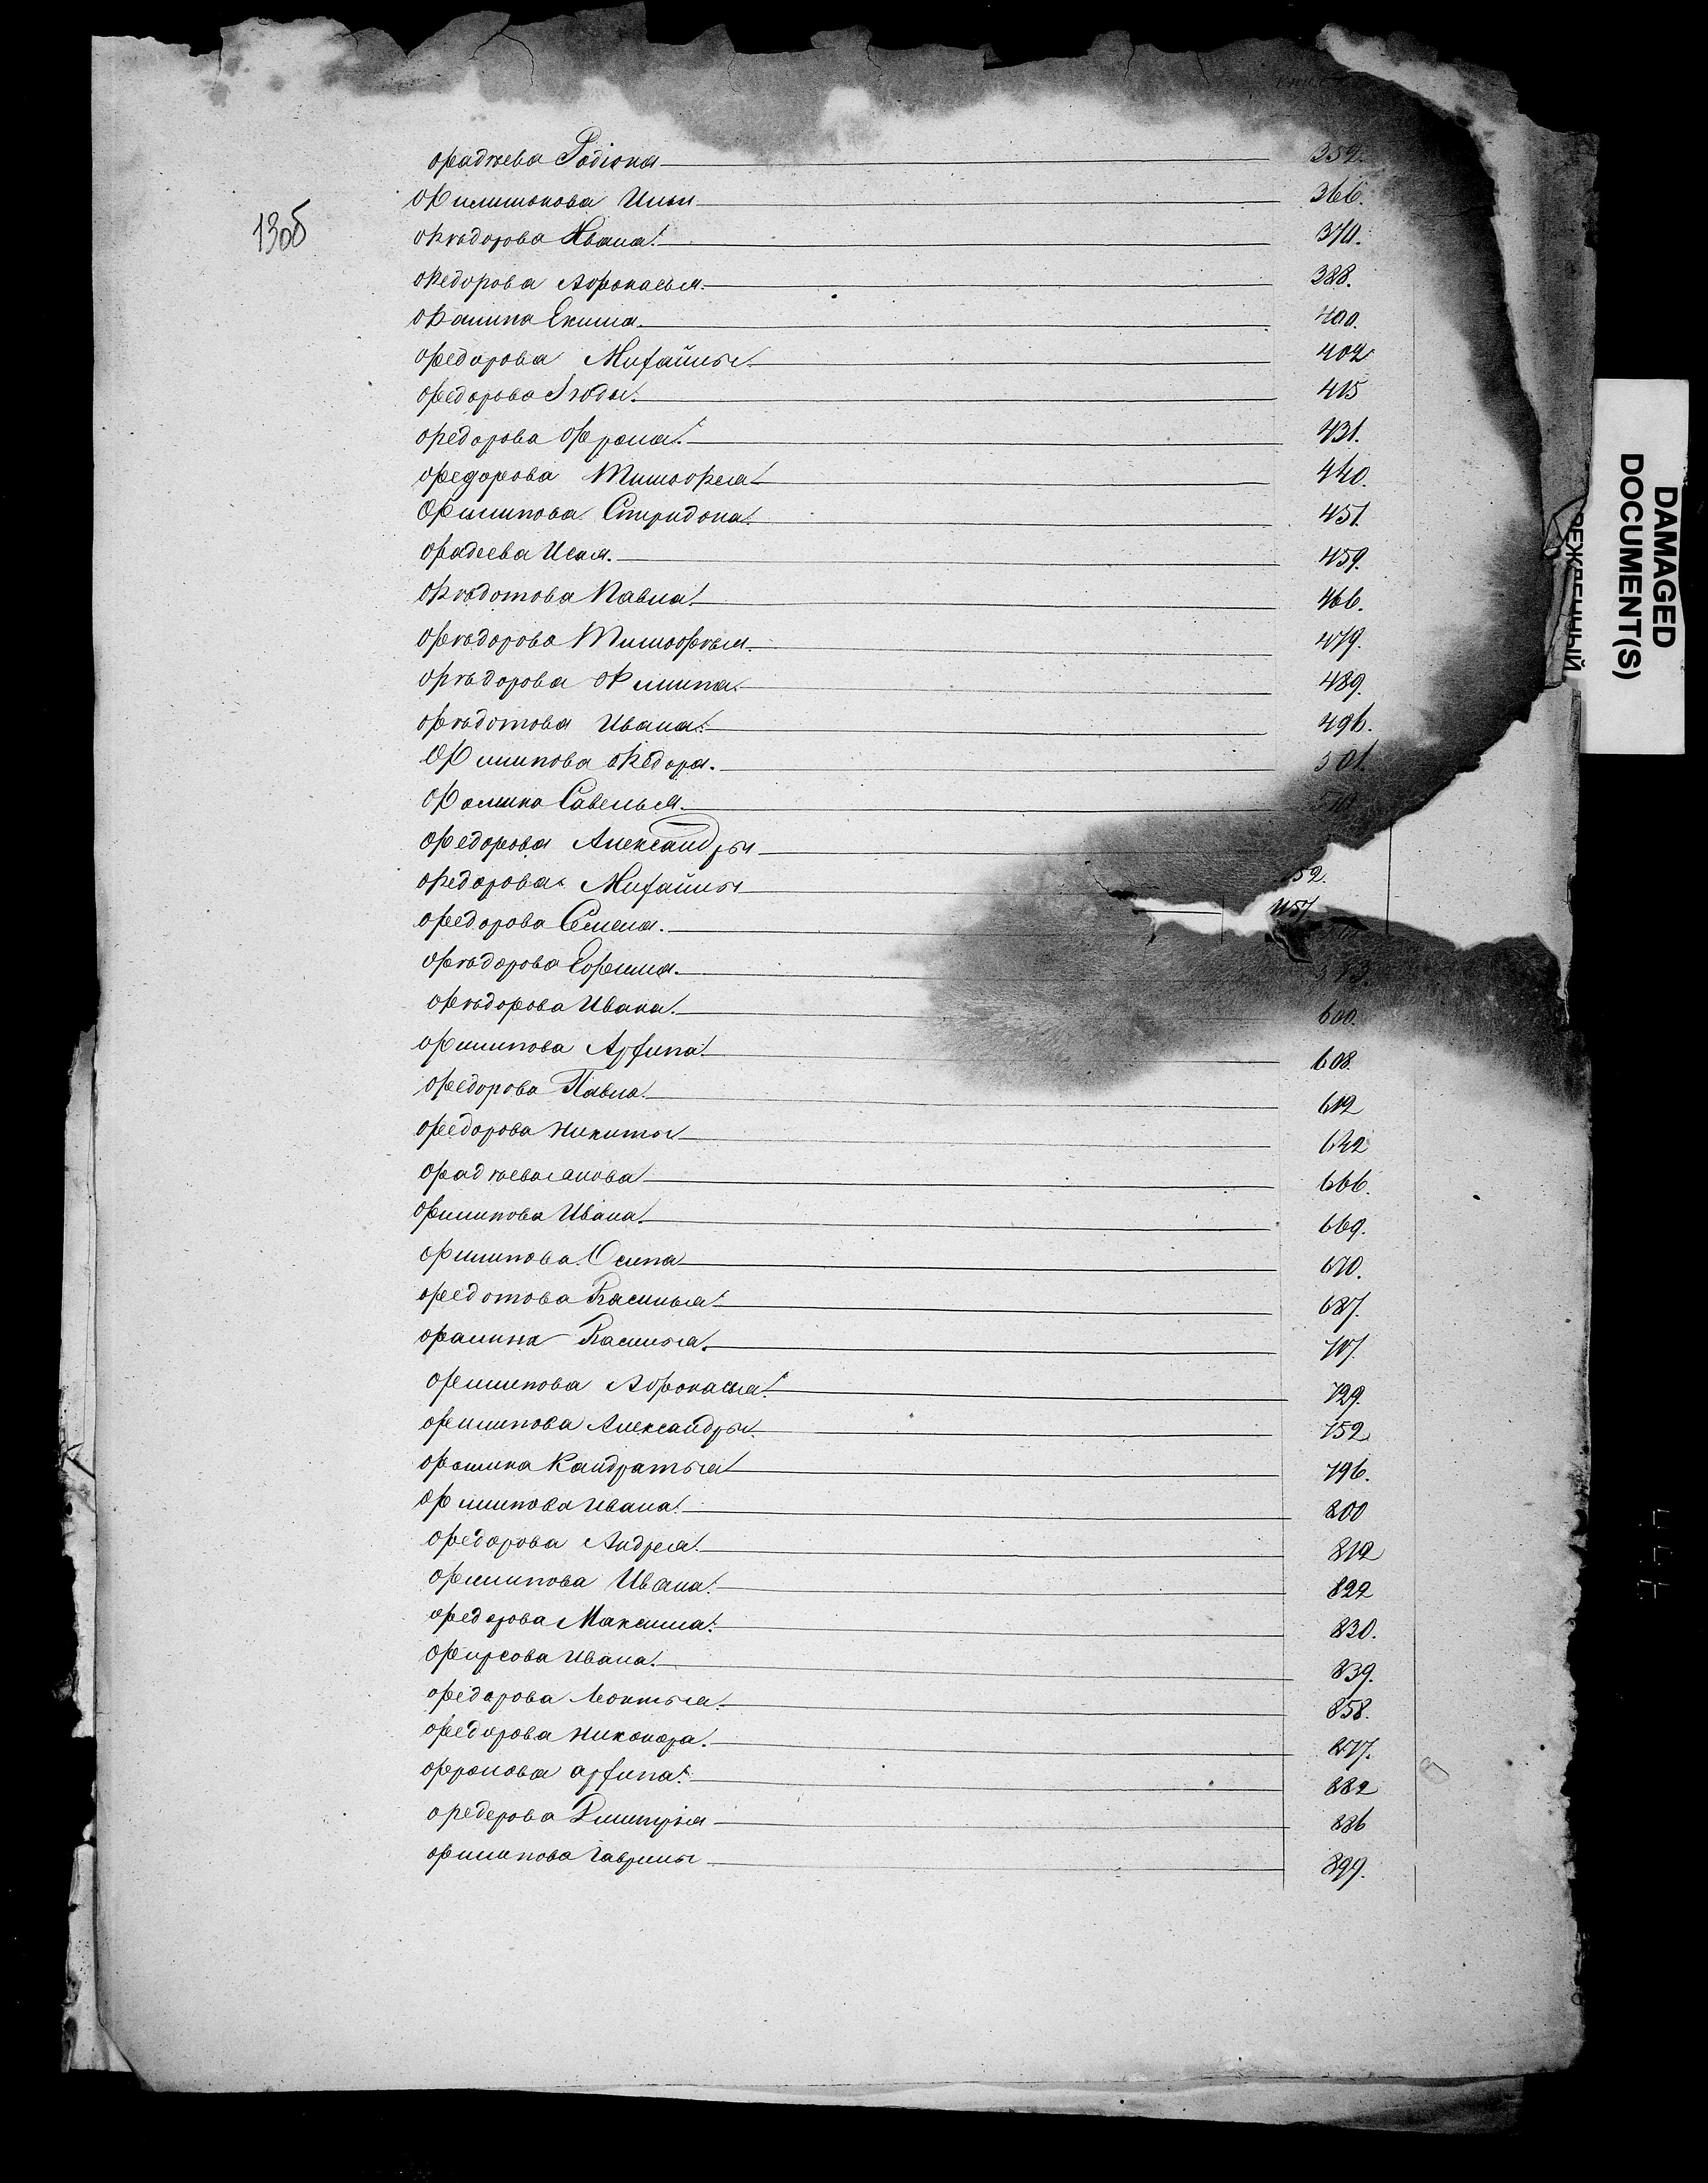 130б
Фадѣева Родіона 352.
Филимонова Ильи 366.
Фѣдорова Ивана. 370.
Федорова Афонасья. 388.
Фомина Екима. 400.
Федорова Михайлы. 402
Федорова 415
Федорова Фрола. 431.
Федорова Тимофея 440.
Филипова Спиридона. 451.
Фадеева Исая. 459.
Фѣдотова Павла. 466.
Фѣдорова Тимофѣья. 479.
Фѣдорова Филипа. 489.
Фѣдотова Ивана. 496.
Филипова Федора. 501.
Фомина Савелья.
Федорова Александры
Федорова Михайлы 52.
Федорова Семена. 557
Фѣдорова Ефима.
Фѣдорова Ивана. 600.
Филипова Архипа. 608.
Федорова Павла. 612
Федорова Никиты 642
Фадѣева 666.
Филипова Ивана. 669.
Филипова Осипа 670.
Федотова Василья. 687.
Фомина Василья. 707.
Филипова Афонасья. 729.
Филипова Александры. 752
Фомина Кандратья 796.
Филипова Ивана. 800
Федорова Андрея. 812
Филипова Ивана. 822
Федорова Максима. 830.
Фирсова Ивана. 839.
Федорова Леонтья. 858.
Федорова Никонора. 877.
Фролова Архипа. 882
Федорова Дмитрія 886
Филипова Гаврилы 899.
DAMAGED
DOCUMENT(S)
РЕЖДЕННЫЙ